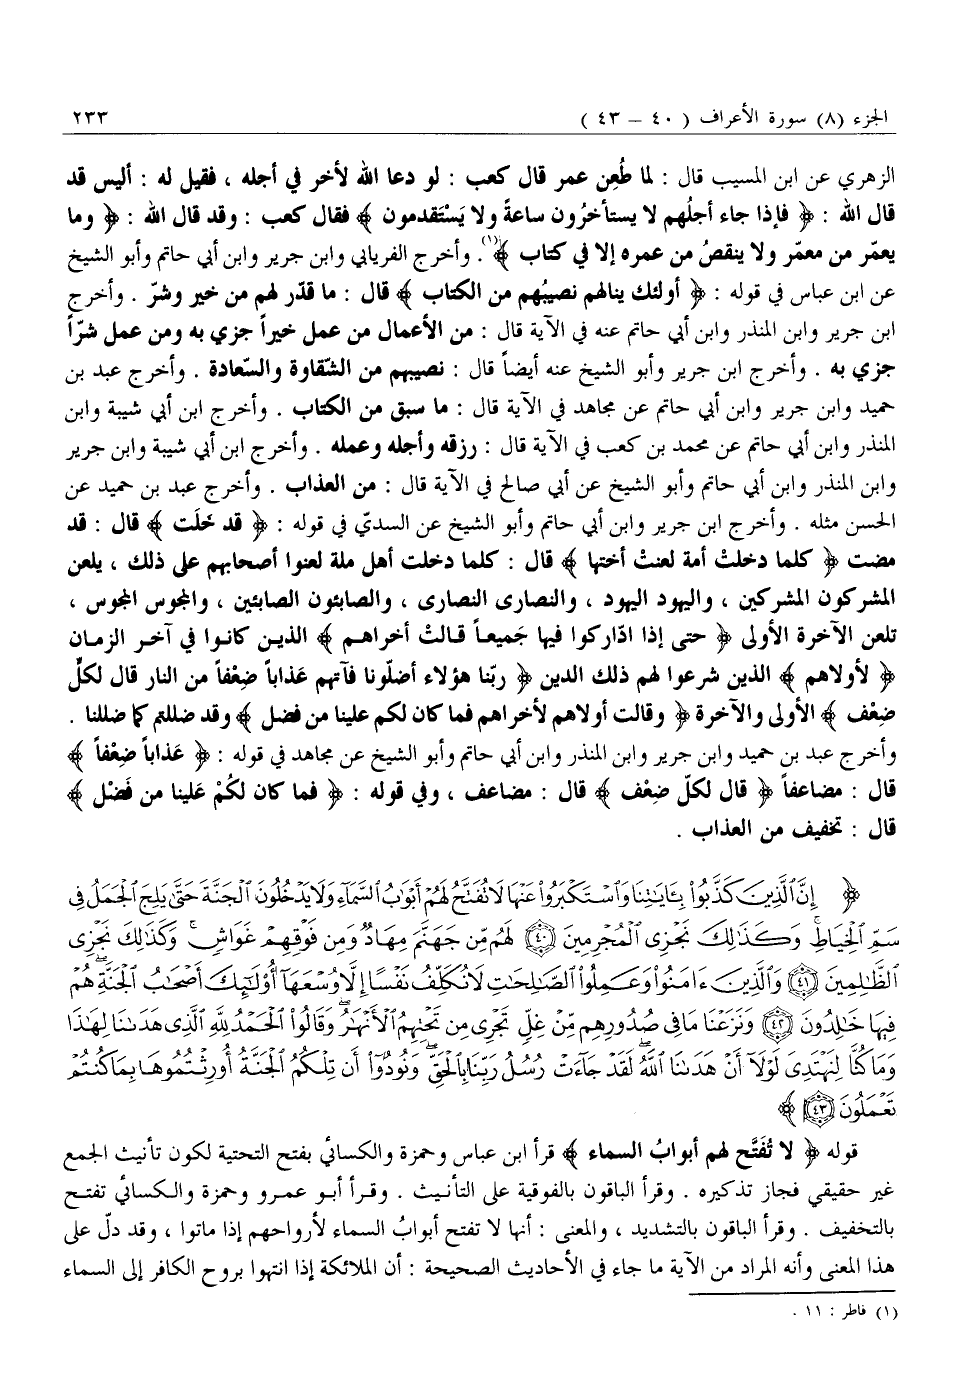 الجزء (٨) سورة الأعراف ( ٤٠ – ٤٣ ) ٢٣٣
الزهري عن ابن المسيب قال : لما طُعِن عمر قال كعب : لو دعا الله لأخر في أجله ، فقيل له : أليس قد
قال الله : ﴿ فإذا جاء أجلُهم لا يستأخرُون ساعةً ولا يَسْتَقدمون ﴾ فقال كعب : وقد قال الله : ﴿ وما
يعمّر من معمّر ولا ينقصُ من عمره إلا في كتاب ﴾(١) . وأخرج الفريابي وابن جرير وابن أبي حاتم وأبو الشيخ
عن ابن عباس في قوله : ﴿ أولئك ينالهم نصيبُهم من الكتاب ﴾ قال : ما قدّر لهم من خير وشرّ . وأخرج
ابن جرير وابن المنذر وابن أبي حاتم عنه في الآية قال : من الأعمال من عمل خيراً جزي به ومن عمل شرّاً
جزي به . وأخرج ابن جرير وأبو الشيخ عنه أيضاً قال : نصيبهم من الشّقاوة والسّعادة . وأخرج عبد بن
حميد وابن جرير وابن أبي حاتم عن مجاهد في الآية قال : ما سبق من الكتاب . وأخرج ابن أبي شيبة وابن
المنذر وابن أبي حاتم عن محمد بن كعب في الآية قال : رزقه وأجله وعمله . وأخرج ابن أبي شيبة وابن جرير
وابن المنذر وابن أبي حاتم وأبو الشيخ عن أبي صالح في الآية قال : من العذاب . وأخرج عبد بن حميد عن
الحسن مثله . وأخرج ابن جرير وابن أبي حاتم وأبو الشيخ عن السديّ في قوله : ﴿ قد خَلَت ﴾ قال : قد
مضت ﴿ كلما دخلتْ أمة لعنتْ أختها ﴾ قال : كلما دخلت أهل ملة لعنوا أصحابهم على ذلك ، يلعن
المشركون المشركين ، واليهود اليهود ، والنصارى النصارى ، والصابئون الصابئين ، والمجوس المجوس ،
تلعن الآخرة الأولى ﴿ حتى إذا ادّاركوا فيها جَميعاً قالتْ أخراهم ﴾ الذين كانوا في آخر الزمان
﴿ لأولاهم ﴾ الذين شرعوا لهم ذلك الدين ﴿ ربّنا هؤلاء أضلّونا فآتهم عَذاباً ضِعْفاً من النار قال لكلٍّ
ضِعْف ﴾ الأولى والآخرة ﴿ وقالت أولاهم لأخراهم فما كان لكم علينا من فضل ﴾ وقد ضللتم كما ضللنا .
وأخرج عبد بن حميد وابن جرير وابن المنذر وابن أبي حاتم وأبو الشيخ عن مجاهد في قوله : ﴿ عَذاباً ضِعْفاً ﴾
قال : مضاعفاً ﴿ قال لكلّ ضِعْف ﴾ قال : مضاعف ، وفي قوله : ﴿ فما كان لكُمْ عَلينا من فَضْل ﴾
قال : تخفيف من العذاب .
﴿ إِنَّ ٱلَّذِينَ كَذَّبُوا۟ بِـَٔايَـٰتِنَا وَٱسْتَكْبَرُوا۟ عَنْهَا لَا تُفَتَّحُ لَهُمْ أَبْوَٰبُ ٱلسَّمَآءِ وَلَا يَدْخُلُونَ ٱلْجَنَّةَ حَتَّىٰ يَلِجَ ٱلْجَمَلُ فِى
سَمِّ ٱلْخِيَاطِ ۚ وَكَذَٰلِكَ نَجْزِى ٱلْمُجْرِمِينَ ٤٠ لَهُم مِّن جَهَنَّمَ مِهَادٌ وَمِن فَوْقِهِمْ غَوَاشٍ ۚ وَكَذَٰلِكَ نَجْزِى
ٱلظَّـٰلِمِينَ ٤١ وَٱلَّذِينَ ءَامَنُوا۟ وَعَمِلُوا۟ ٱلصَّـٰلِحَـٰتِ لَا نُكَلِّفُ نَفْسًا إِلَّا وُسْعَهَآ أُو۟لَـٰٓئِكَ أَصْحَـٰبُ ٱلْجَنَّةِ ۖ هُمْ
فِيهَا خَـٰلِدُونَ ٤٢ وَنَزَعْنَا مَا فِى صُدُورِهِم مِّنْ غِلٍّ تَجْرِى مِن تَحْتِهِمُ ٱلْأَنْهَـٰرُ ۖ وَقَالُوا۟ ٱلْحَمْدُ لِلَّهِ ٱلَّذِى هَدَىٰنَا لِهَـٰذَا
وَمَا كُنَّا لِنَهْتَدِىَ لَوْلَآ أَنْ هَدَىٰنَا ٱللَّهُ ۖ لَقَدْ جَآءَتْ رُسُلُ رَبِّنَا بِٱلْحَقِّ ۖ وَنُودُوٓا۟ أَن تِلْكُمُ ٱلْجَنَّةُ أُورِثْتُمُوهَا بِمَا كُنتُمْ
تَعْمَلُونَ ٤٣ ﴾
قوله ﴿ لا تُفَتَّح لهم أبوابُ السماء ﴾ قرأ ابن عباس وحمزة والكسائي بفتح التحتية لكون تأنيث الجمع
غير حقيقي فجاز تذكيره . وقرأ الباقون بالفوقية على التأنيث . وقرأ أبو عمرو وحمزة والكسائي تفتح
بالتخفيف . وقرأ الباقون بالتشديد ، والمعنى : أنها لا تفتح أبوابُ السماء لأرواحهم إذا ماتوا ، وقد دلّ على
هذا المعنى وأنه المراد من الآية ما جاء في الأحاديث الصحيحة : أن الملائكة إذا انتهوا بروح الكافر إلى السماء
(١) فاطر : ١١ .